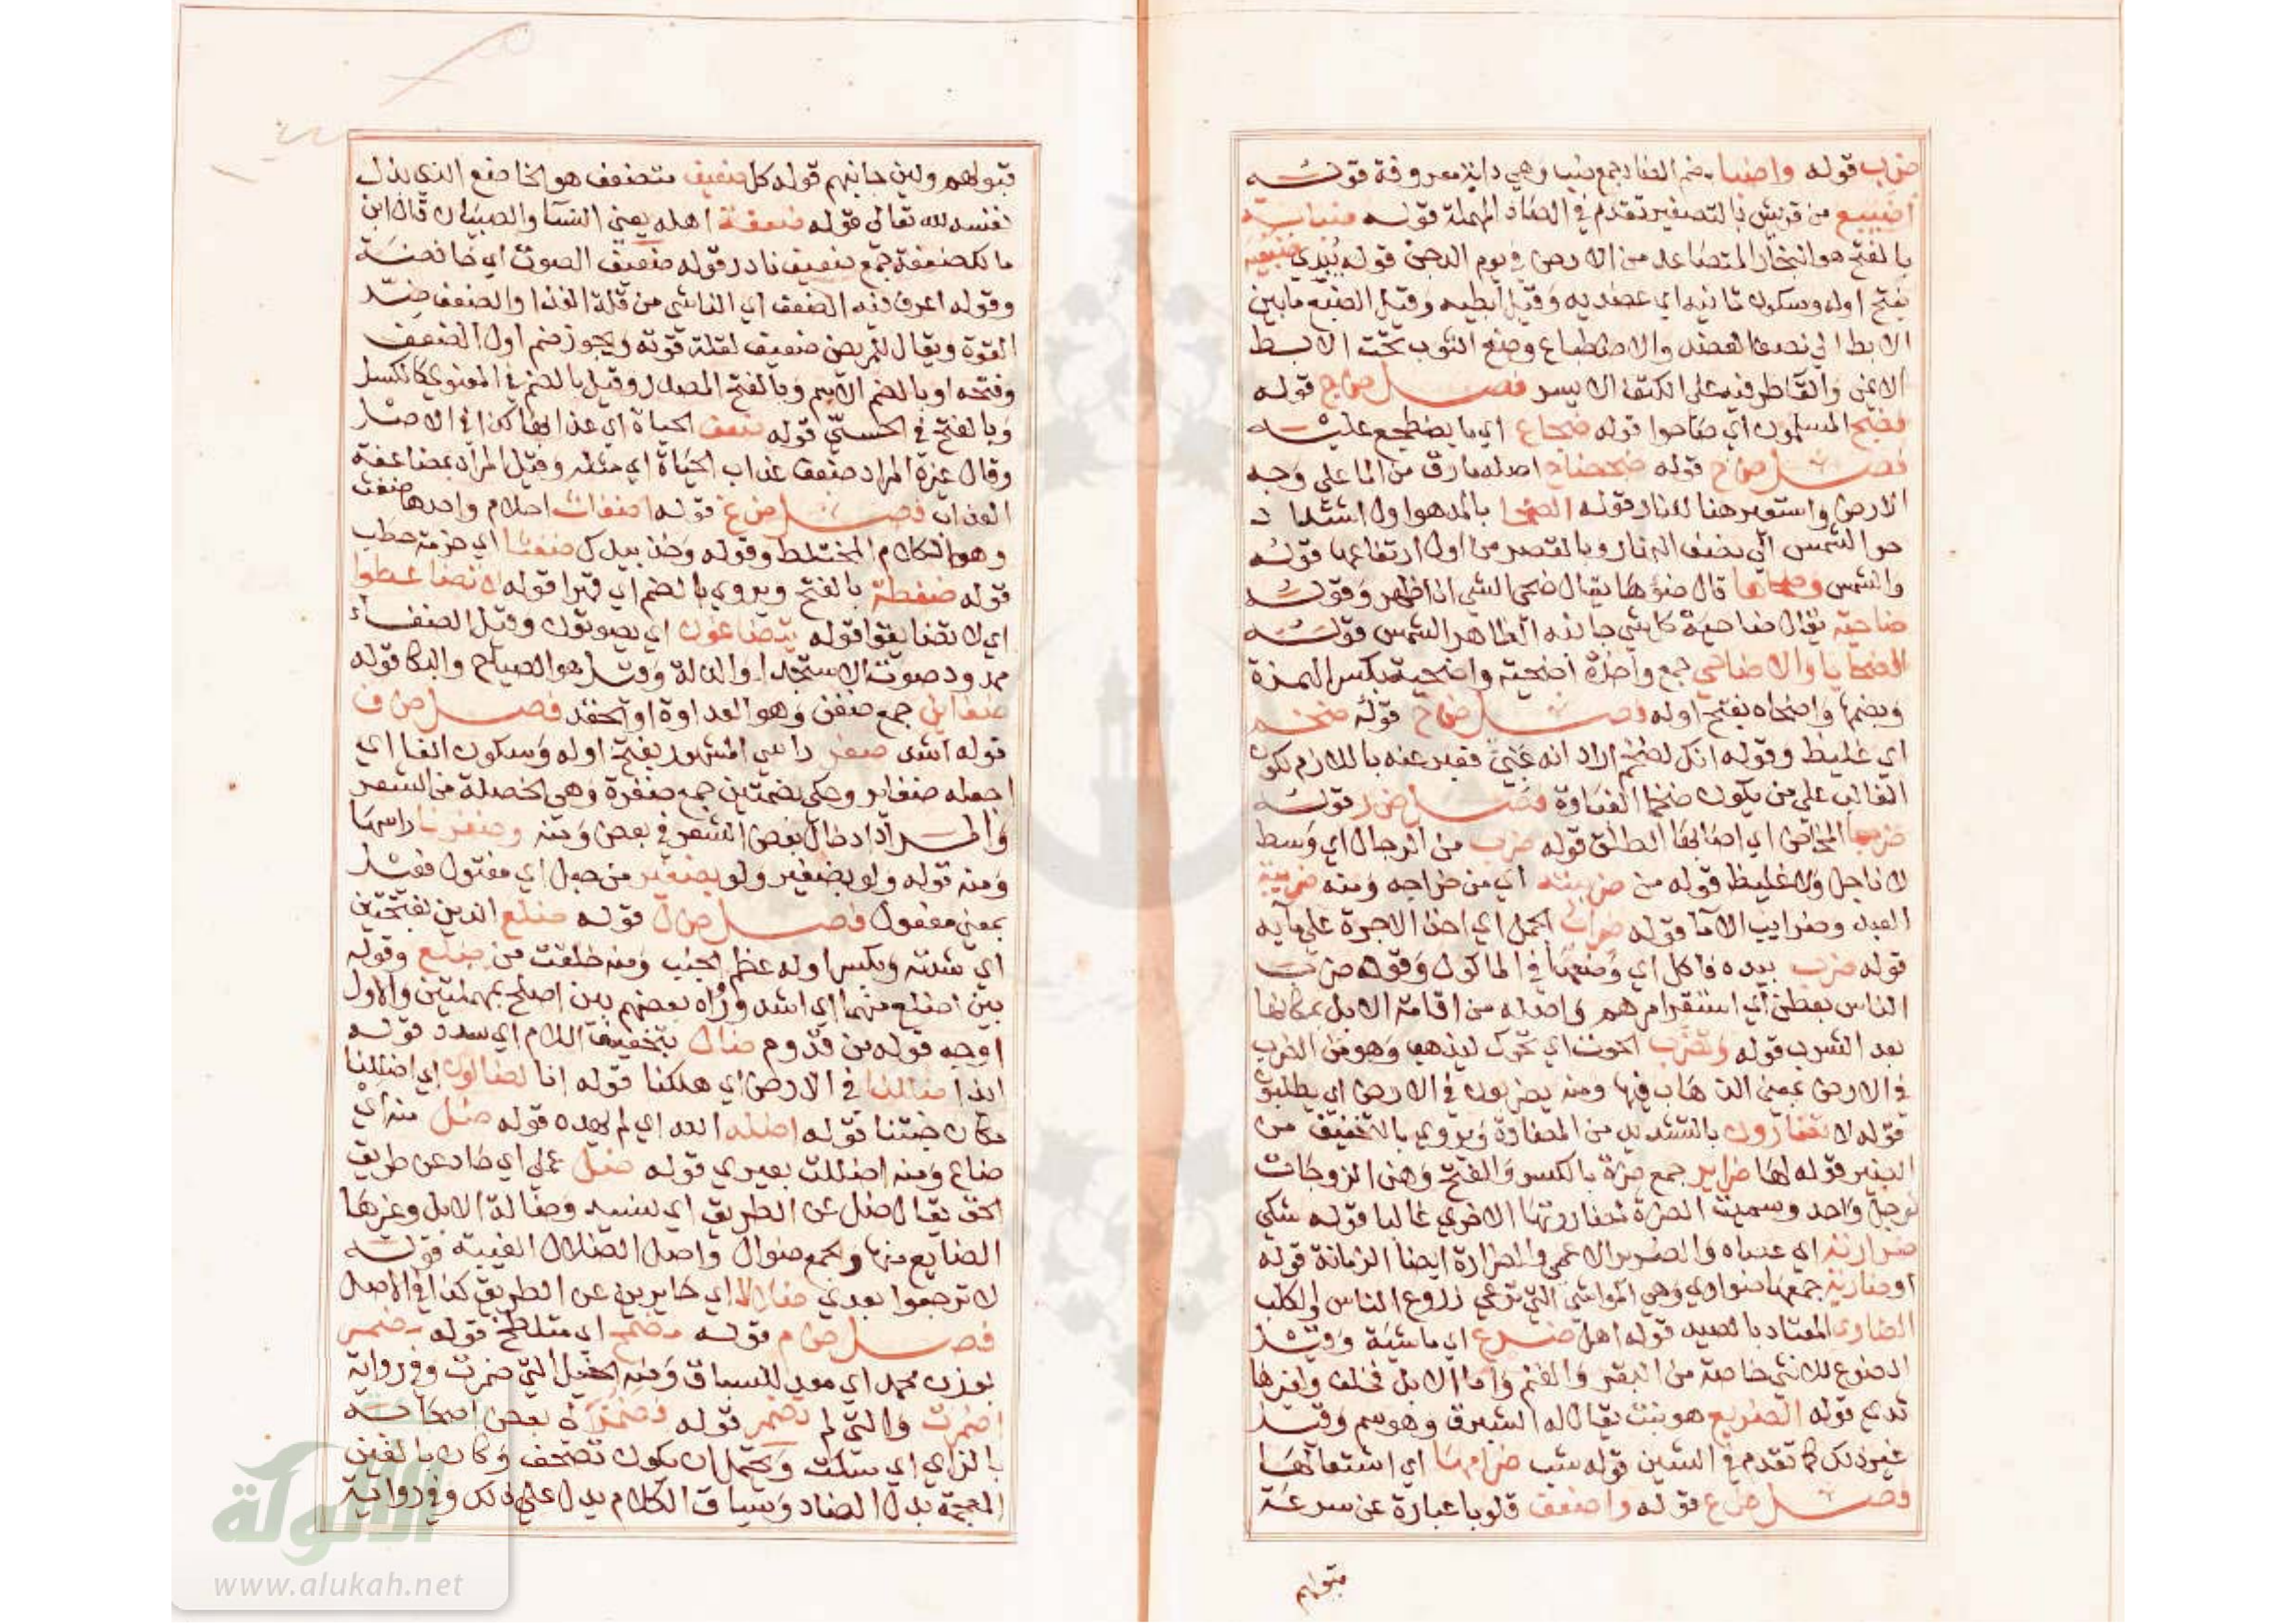 ض ب قوله واضبا بضم الضاد جمع ضب وهي دابة معروفة قوله
اضيبع من قريش بالتصغير تقدم في الصاد المهملة قوله ضبابة
بالفتح هو البخار المتصاعد من الارض في يوم الدجن قوله يبدي ضبعيه
بفتح اوله وسكون ثانيه اي عضديه وقيل ابطيه وقيل الضبع مابين
الابط الي نصف العضد والاضطباع وضع الثوب تحت الابط
الايمن والقا طرفيه علي الكتف الايسر فصل ض ج قوله
فضج المسلمون اي صاحوا قوله ضجاع اي ما يضطجع عليه
فصل ض ح قوله ضحضاح اصله مارق من الما علي وجه
الارض واستعير هنا للنار قوله الضحا بالمد هو اول اشتداد
حر الشمس الي نصف النهار وبالقصر من اول ارتفاعها قوله
والشمس وضحاها قال ضوؤها يقال ضحى الشي اذا ظهر وقوله
ضاحية يقال ضاحية كل شي جانبه الظاهر للشمس قوله
الضحايا والاضاحي جمع واحدة اضحية واضحية بكسر الهمزة
وبضمها واضحاه بفتح اوله فصل ض خ قوله ضخم
اي غليظ وقوله انك لضخم اراد انه غبي فعبر عنه باللازم لكون
الغالب علي من يكون ضخما الغباوة فصل ض ر قوله
ضربها المخاض اي اصابها الطلق قوله ضرب من الرجال اي وسط
لا ناحل ولا غليظ قوله من ضريبته اي من خراجه ومنه ضريبة
العبد وضرايب الاما قوله ضراب الجمل اي اخذ الاجرة علي مايه
قوله ضرب بيده فاكل اي وضعها في الماكول وقوله ضرب
الناس بعطن اي استقر امرهم واصله من اقامة الابل بمكانها
بعد الشرب قوله وتضرب الحوت اي تحرك ليذهب وهو من الضرب
في الارض بمعني الذهاب فيها ومنه يضربون في الارض اي يطلبون
قوله لا تضارون بالتشديد من المضارة ويروي بالتخفيف من
الضير قوله لها ضراير جمع ضرة بالكسر والفتح وهن الزوجات
لرجل واحد وسميت الضرة لمضارتها الاخري غالبا قوله شكي
ضرارته اي عماه والضرير الاعمي والضرارة ايضا الزمانة قوله
او ضارية جمعها ضواري وهي المواشي التي ترعي زروع الناس والكلب
الضاري المعتاد بالصيد قوله اهل ضرع اي ماشية وقيل
الضروع للانثي خاصة من البقر والغنم واما الابل فخلف ولغيرها
ثدي قوله الضريع هو نبت يقال له الشبرق وهو سم وقيل
غير ذلك كما تقدم في الشين قوله شب ضرامها اي اشتعالها
فصل ض ع قوله واضعف قلوبا عبارة عن سرعة
قبولهم
قبولهم ولين جانبهم قوله كل ضعيف متضعف هو الخاضع الذي يذل
نفسه لله تعالي قوله ضعفة اهله يعني النسا والصبيان قال ابن
مالك ضعفة جمع ضعيف نادر قوله ضعيف الصوت اي خافضه
وقوله اعرف فيه الضعف اي الناشي من قلة الغذا والضعف ضد
القوة ويقال للمريض ضعيف لقلة قوته ويجوز ضم اول الضعف
وفتحه او بالضم الاسم وبالفتح المصدر وقيل بالضم في المعنوي كالكسل
وبالفتح في الحسي قوله ضعف الحياة اي عذابها كذا في الاصل
وقال غيره المراد ضعف عذاب الحياة اي مثله وقيل المراد بمضاعفة
العذاب فصل ض غ قوله اضغاث احلام واحدها ضغث
وهو الكلام المختلط وقوله وخذ بيدك ضغثا اي حزمة حطب
قوله ضغطة بالفتح ويروي بالضم اي قهرا قوله لا تضاغطوا
اي لا تضايقوا قوله يتضاغون اي يصوتون وقيل الضغاء
ممدود صوت الاستخذا والذلة وقيل هو الصياح والبكا قوله
ضغاين جمع ضغن وهو العداوة او الحقد فصل ض ف
قوله اشد ضفر راسي المشهور بفتح اوله وسكون الفا اي
اجعله ضفاير وحكي بضمتين جمع ضفرة وهي الخصلة من الشعر
والمراد ادخال بعض الشعر في بعض ومنه وضفرنا راسها
ومنه قوله ولو بضفير ولو بضفير من حبل اي مفتول فعيل
بمعني مفعول فصل ض ل قوله ضلع الدين بفتحتين
اي شدته وبكسر اوله عظم الجنب ومنه خلقت من ضلع وقوله
بين اضلع منهما اي اشد ورواه بعضهم بين اصلح بمهملتين والاول
اوجه قوله من قدوم ضال بتخفيف اللام اي سدر قوله
ايذا ضللنا في الارض اي هلكنا قوله انا لضالون اي اضللنا
مكان جنتنا قوله اضله الله اي لم يهده قوله ضل منه اي
ضاع ومنه اضللت بعيري قوله ضل عملي اي حاد عن طريق
الحق يقال ضل عن الطريق اي نسيه وضالة الابل وغيرها
الضايع منها والجمع ضوال واصل الضلال الغيبة قوله
لا ترجعوا بعدي ضلالا اي حايرين عن الطريق كذا في الاصل
فصل ض م قوله مضمخ اي متلطخ قوله مضمر
بوزن محمد اي معد للسباق ومنه الخيل التي ضمرت وفي رواية
اضمرت والتي لم تضمر قوله فضمز له بعض اصحابه
بالزاي اي سكت ويحتمل ان يكون تصحف وكان بالغين
المعجمة بدل الضاد وسياق الكلام يدل علي ذلك وفي رواية
الألوكة
www.alukah.net